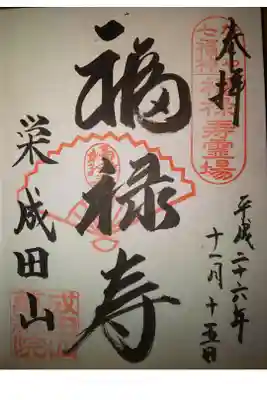 奉拝
七福神
福禄寿霊場
平成二十六年
十一月十五日
福禄寿
栄成田山
成田山